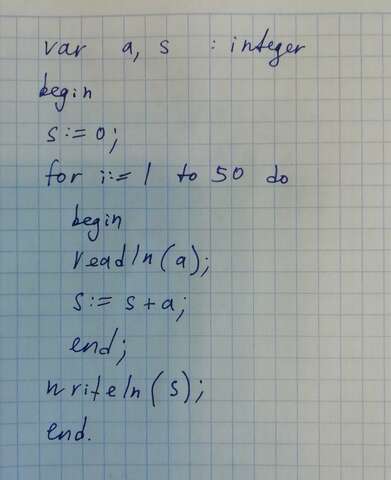 var a, s : integer
begin
s:=0;
for i:=1 to 50 do
begin
readln(a);
s:= s+a;
end;
writeln(s);
end.